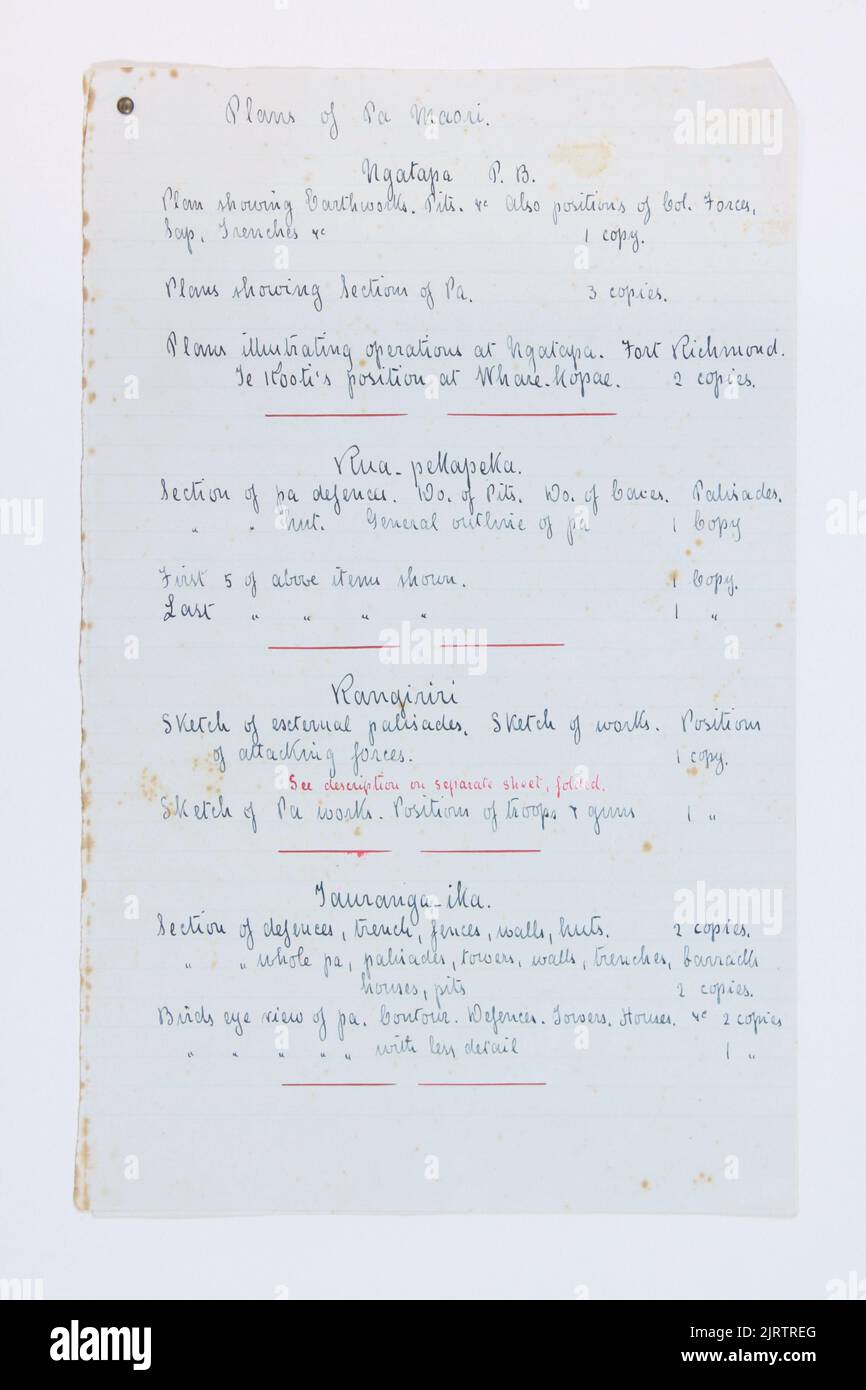 Plans of Pa Maori.
Ngatapa P. B.
Plan showing Earthworks. Pits. &c Also positions of Col. Forces,
Sap, Trenches &c 1 copy.
Plans showing Section of Pa. 3 copies.
Plans illustrating operations at Ngatapa. Fort Richmond.
Te Kooti's position at Whare-Kopae. 2 copies.
Rua-pekapeka.
Section of pa defences. Do. of Pits. Do. of Caves. Palisades.
" " hut. General outline of pa 1 Copy
First 5 of above items shown. 1 Copy.
Last " " " " 1 "
Rangiriri
Sketch of external palisades. Sketch of works. Positions
of attacking forces. 1 copy.
See description on separate sheet, folded.
Sketch of Pa works. Positions of troops & guns 1 "
Tauranga-ika.
Section of defences, trench, fences, walls, huts. 2 copies.
" " whole pa, palisades, towers, walls, trenches, barracks
houses, pits 2 copies.
Birds eye view of pa. Contour. Defences. Towers. Homes. &c 2 copies
" " " " " with less detail 1 "
alamy
alamy
Image ID: 2JRTREG
www.alamy.com